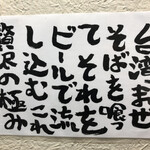 台湾まぜ
そばを喰っ
てそれを
ビールで流
し込むこれ
贅沢の極み